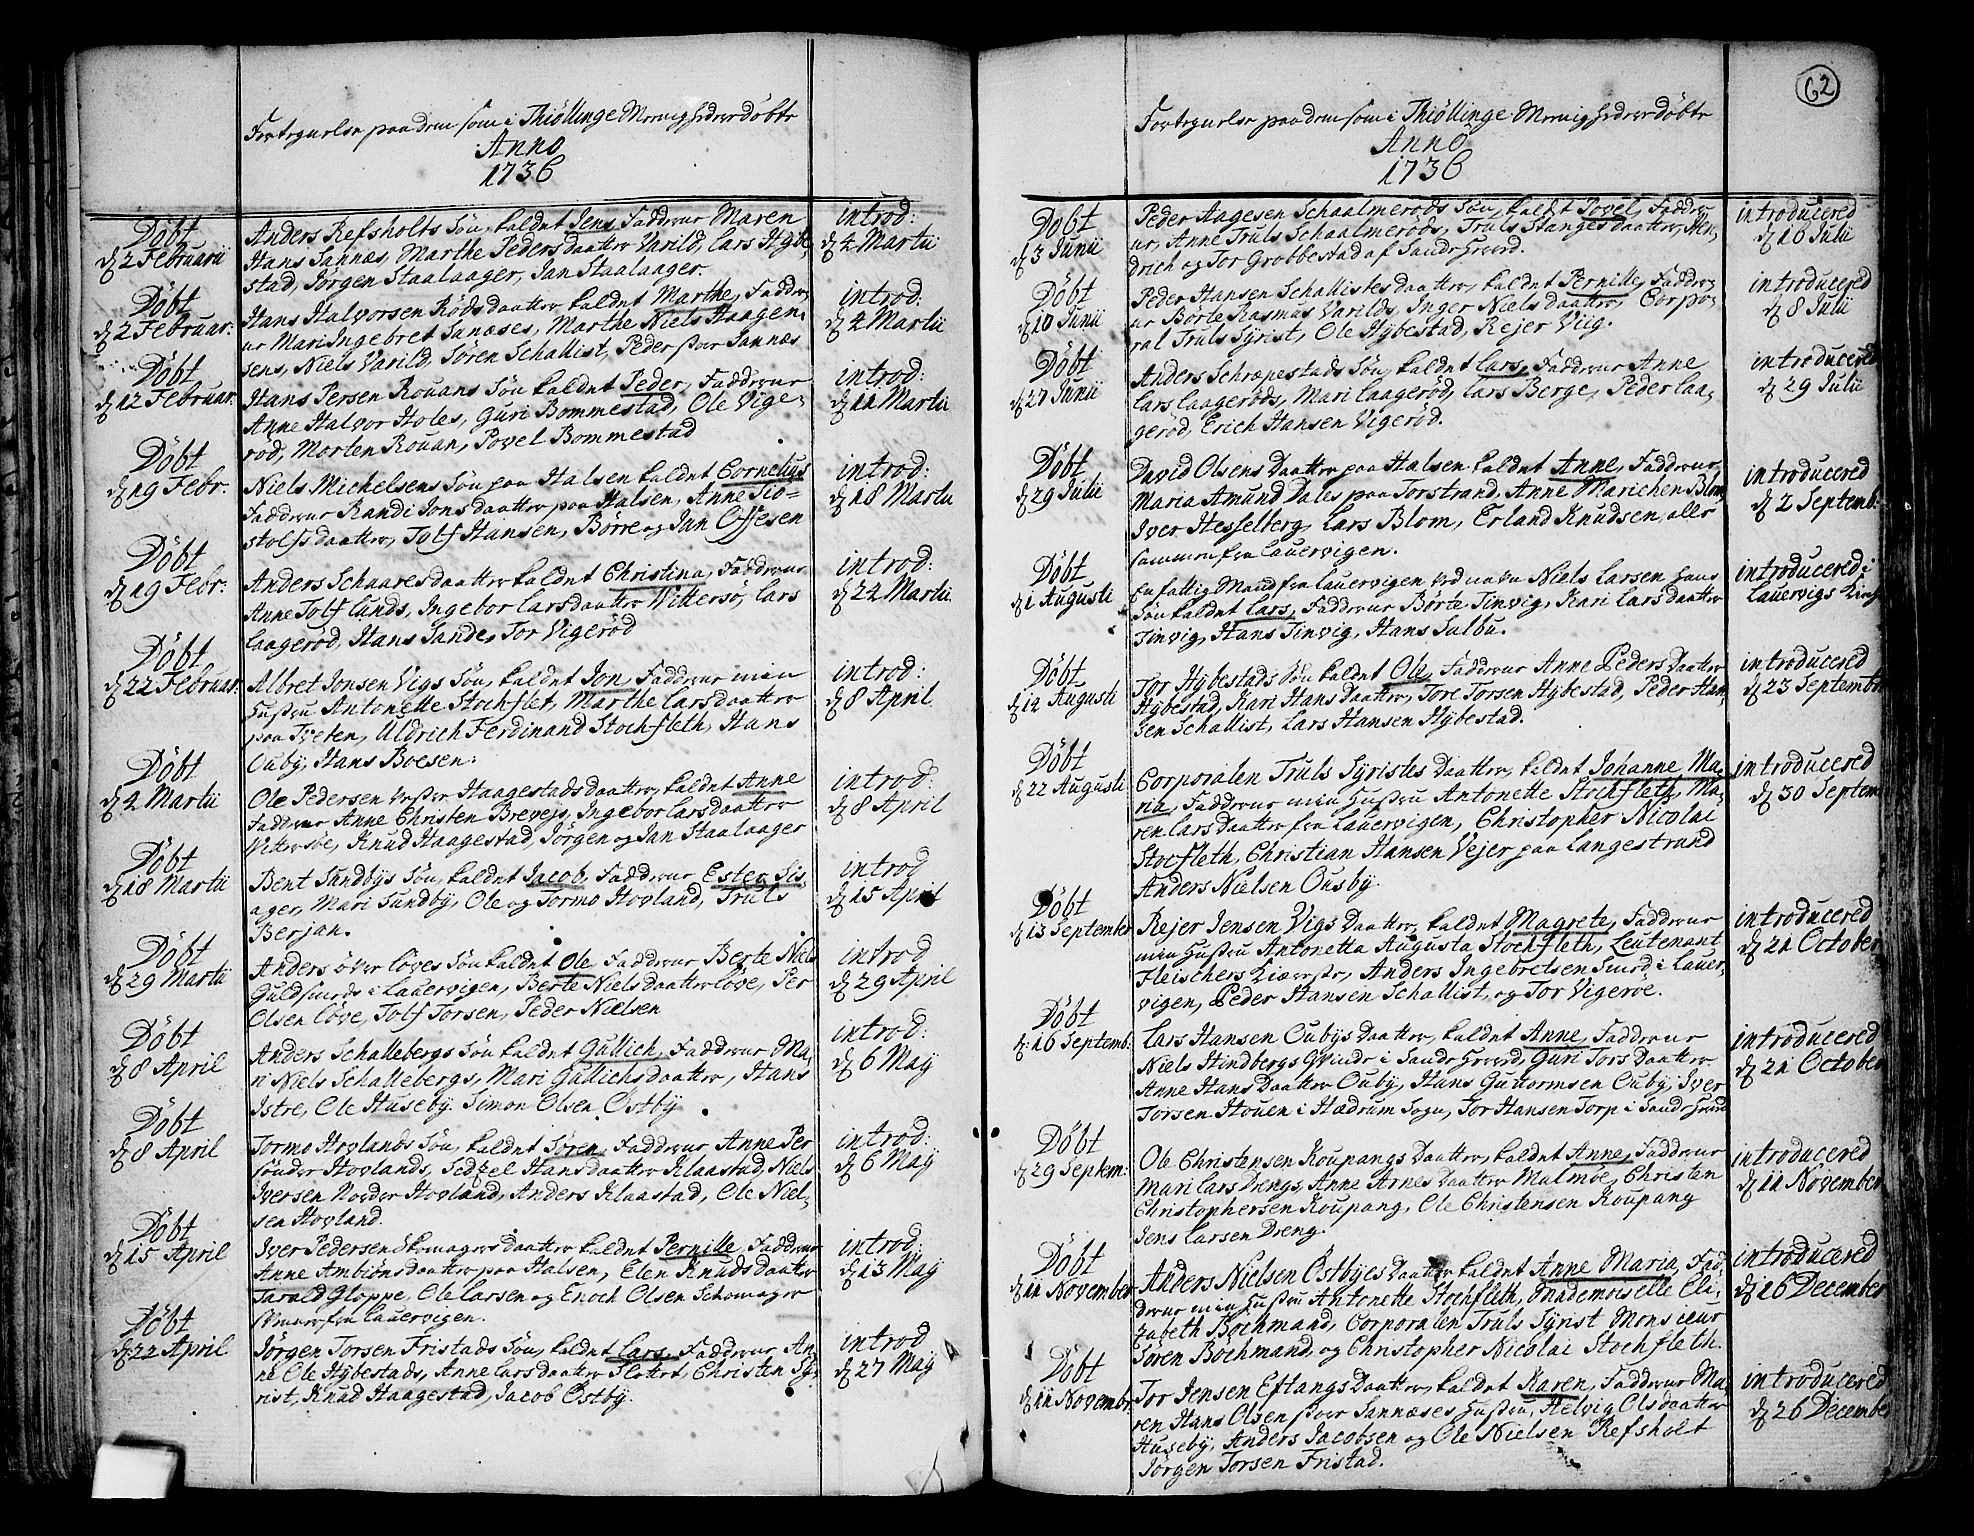 Fortegnelse paa dem som i Thiöllinge Menigheder döbte
Anno
1736
Döbt
d 2 Februarii
Anders Refsholts Sön, kaldet Jens, Fadderne Maren
Hans Sannæs, Marthe Peders daatter Varild, Lars Hybe-
stad, Jörgen Staalaager, Jan Staalaager.
introd:
d 4 Martii
Döbt
d 2 Februar:
Hans Halvorsen Röds daatter kaldet Marthe, Fadder
ne Mari Ingebret Sanæses, Marthe Niels Haagen-
sens, Niels Varild, Sören Schallist, Peder store Sannæs
introd:
d 4 Martii
Döbt
d 12 Februar.
Hans Persen Rouans Sön kaldet Peder, Fadderne
Anne Halvor Holes, Guri Bommestad, Ole Vige-
röd, Morten Rouan, Povel Bommestad
introd:
d 11 Martii
Döbt
d 19 Febr.
Niels Michelsens Sön paa Halsen kaldet Cornelius
Fadderne Randi Jons daatter paa Halsen, Anne Tio-
stolfs daatter, Tolf Hansen, Börre og Jan Offesen
introd:
d 18 Martii
Döbt
d 19 Febr.
Anders Schaares daatter kaldet Christina, Fadderne
Anne Tolf Lunds, Ingebor Lars daatter Wittersö, Lars
Laageröd, Hans Sande, Tor Vigeröd
introd:
d 22 Martii
Döbt
d 22 Februar.
Albret Jonsen Vigs Sön, kaldet Jon, Fadderne min
Hustru Antonette Stochflet, Marthe Lars daatter
paa Tveten, Uldrich Ferdinand Stochfleth, Hans
Ouby, Hans Boesen.
introd:
d 8 April
Döbt
d 4 Martii
Ole Pedersen vester Haagestads daatter, kaldet Anne
Fadderne Anne Christen Brevejs, Ingebor Lars daatter
Vittersöe, Knud Haagestad, Jörgen og Jan Staalaager
introd:
d 8 April
Döbt
d 18 Martii
Bent Sundbys Sön, kaldet Jacob, Fadderne Ester Sis-
ager, Mari Sundby, Ole og Tormo Hovland, Truls
Berjan.
introd
d 15 April
Döbt
d 29 Martii
Anders över Löves Sön kaldet Ole, Fadderne Berte Niels
Guldsmeds i Lauervigen, Berte Niels daatter Löve, Per
Olsen Löve, Tolf Torsen, Peder Nielsen
introd
d 29 April
Döbt
d 8 April
Anders Schallebergs Sön kaldet Gullich, Fadderne Ma-
ri Niels Schallebergs, Mari Gullichs daatter, Hans
Istre, Ole Huseby. Simon Olsen Östby
introd:
d 6 Maÿ
Döbt
d 8 April
Tormo Hovlands Sön, kaldet Sören, Fadderne Anne Per
sönder Hovlands, Sedzel Hans daatter Klaastad, Niels
Iversen Norder Hovland, Anders Klaastad, Ole Niel-
sen Hovland.
introd:
d 6 Maÿ
Döbt
d 15 April
Iver Pedersen Skomagers daatter kaldet Pernille, Fadderne
Anne Ambiöns daatter paa Halsen, Elen Knuds daatter
Tarald Gloppe, Ole Larsen og Enoch Olsen Schomager
fra Lauervigen.
introd:
d 13 Maÿ
Döbt
d 22 April
Jörgen Torsen Fristads Sön, kaldet Lars, Fadderne An-
ne Ole Hybestads, Anne Lars daatter Slottet, Christen Sy-
rist, Knud Haagestad, Jacob Östby.
introd
d 27 Maÿ
62
Fortegnelse paa dem som i Thiöllinge Menigheder döbte
Anno
1736
Döbt
d 3 Junii
Peder Aagesen Schaalmeröds Sön, kaldet Povel, Fadder
ne, Anne Truls Schaalmeröds, Truls Stanges daatter, Hen-
drich og Tor Grobbestad af Sande Gierd.
introducered
d 16 Julii
Döbt
d 10 Junii
Peder Hansen Schallistes daatter, kaldet Pernille, Fadder-
ne Börte Rasmus Varilds, Inger Niels daatter, Corpo-
ral Truls Syrist, Ole Hybestad, Rejer Viig.
introducered
d 8 Julii
Döbt
d 27 Junii
Anders Schræpestads Sön, kaldet Lars, Fadderne Anne
Lars Laageröds, Mari Laageröd, Lars Berge, Peder Laa-
geröd, Erich Hansen Vigeröd.
introducered
d 29 Julii
Döbt
d 29 Julii
David Olsens Daatter paa Halsen kaldet Anne, Fadderne
Maria Amund Dales paa Torstrand, Anne Marichen Blom,
Iver Hesselberg, Lars Blom, Erland Knudsen, alle
sammen fra Lauervigen.
introducered
d 2 Septemb:
Döbt
d 1 Augusti
En fattig Mand fra Lauervigen ved navn Niels Larsen hans
Sön kaldet Lars, Fadderne Börte Tinvig, Kari Lars daatter
Tinvig, Hans Tinvig, Hans Salbu.
introducered i
Lauervigs Kirche
Döbt
d 12 Augusti
Tor Hybestads Sön kaldet Ole, Fadderne Anne Peders Daatter
Hybestad, Kari Hans Daatter, Tore Torsen Hybestad, Peder Han-
sen Schallist, Lars Hansen Hybestad.
introducered
d 23 Septembr
Döbt
d 22 Augusti
Corporalen Truls Syristes daatter, kaldet Johanne Ma-
ria, Fadderne min Hustru Antonette Stochfleth, Ma-
ren Lars daatter fra Lauervigen, Christopher Nicolai
Stocfleth, Christian Hansen Vejer paa Langestrand
Anders Nielsen Ousby.
introducered
d 30 Septem
Döbt
d 13 September
Rejer Jensen Vigs Daatter, kaldet Magrete, Fadderne
min Hustru Antonetta Augusta Stochfleth, Leutenant
Fleischers Kiæreste, Anders Ingebretsen Smed i Lauer-
vigen, Peder Hansen Schallist, og Tor Vigeröe.
introducered
d 21 October
Döbt
d: 16 Septemb:
Lars Hansen Oubys Daatter, kaldet Anne, Fadderne
Niels Hindbergs Qvinde i Sande Gierd, Guri Tors Daatter
Anne Hans Daatter Ouby, Hans Guttormsen Ouby, Iver
Torsen Houen i Hædrum Sogn, Tor Hansen Torp i Sande Gierd
introducered
d 21 October
Döbt
d 29 Septem:
Ole Christensen Koupangs Daatter, kaldet Anne, Fadderne
Mari Lars Drengs, Anne Arnes Daatter Malmöe, Christen
Christophersen Koupang, Ole Christensen Koupang
Jens Larsen Dreng.
introducered
d 11 November
Döbt
d 11 November
Anders Nielsen Östbyes Daatter kaldet Anne Maria, Fad-
derne min Hustru Antonette Stochfleth, Mademoiselle Eli-
zabeth Bochmand, Corporalen Truls Syrist Monsieur
Sören Bochmand, og Christopher Nicolai Stochfleth.
introducered
d 26 December
Döbt
d 11 Novembr
Tor Jensen Eftangs Daatter, kaldet Karen, Fadderne Ma-
ren Hans Olsen store Sannæses Hustru, Helvig Ols daatter
Huseby, Anders Jacobsen og Ole Nielsen Refsholt
Jörgen Torsen Fristad.
introducered
d 26 December